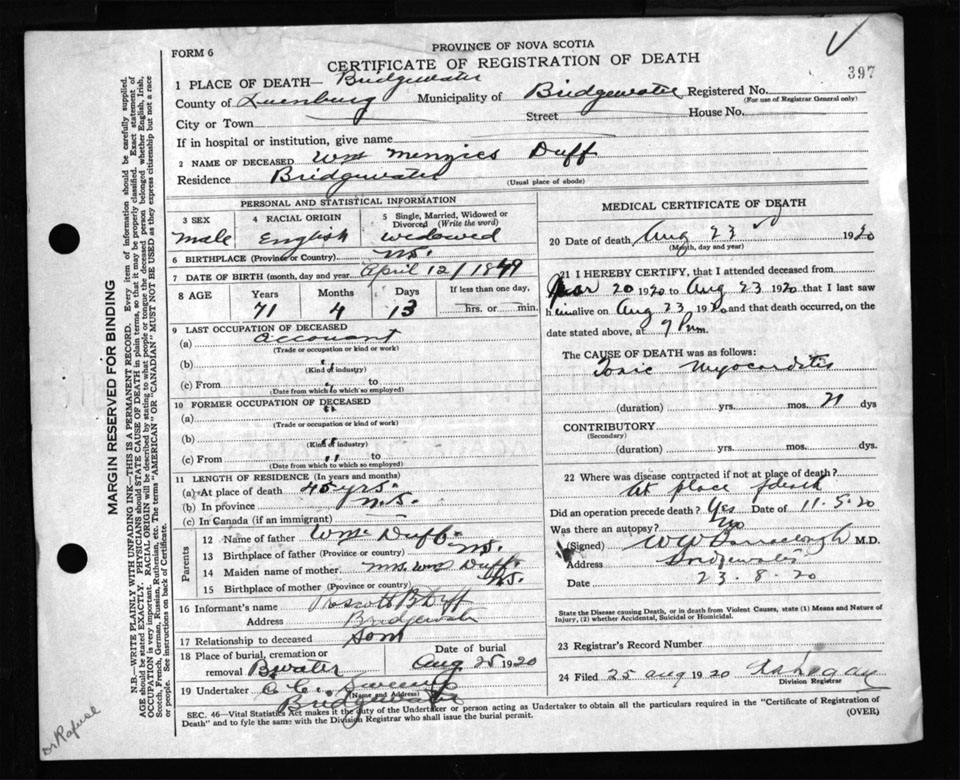 FORM 6
PROVINCE OF NOVA SCOTIA
CERTIFICATE OF REGISTRATION OF DEATH
397
1 PLACE OF DEATH— Bridgewater
County of Lunenburg Municipality of Bridgewater Registered No.
(For use of Registrar General only)
City or Town Street House No.
If in hospital or institution, give name
2 NAME OF DECEASED Wm Menzies Duff
Residence Bridgewater (Usual place of abode)
PERSONAL AND STATISTICAL INFORMATION
3 SEX
Male
4 RACIAL ORIGIN
English
5 Single, Married, Widowed or Divorced (Write the word)
Widowed
6 BIRTHPLACE (Province or Country) N.S.
7 DATE OF BIRTH (month, day and year) April 12/1849
8 AGE Years Months Days If less than one day,
71 4 13 hrs. or min.
9 LAST OCCUPATION OF DECEASED
(a)
(Trade or occupation or kind or work)
(b) "
(Kind of industry)
(c) From " to
(Date from which to which so employed)
10 FORMER OCCUPATION OF DECEASED
(a) "
(Trade or occupation or kind of work)
(b) "
(Kind of industry)
(c) From " to
(Date from which to which so employed)
11 LENGTH OF RESIDENCE (In years and months)
(a) At place of death 45 yrs.
(b) In province N.S.
(c) In Canada (if an immigrant)
Parents
12 Name of father Wm Duff
13 Birthplace of father (Province or country) N.S.
14 Maiden name of mother Mrs. Wm Duff
15 Birthplace of mother (Province or country) N.S.
16 Informant's name Duff
Address Bridgewater
17 Relationship to deceased Son
18 Place of burial, cremation or removal B.water
Date of burial
Aug 25 1920
19 Undertaker
(Name and Address)
Bridgewater
MEDICAL CERTIFICATE OF DEATH
20 Date of death Aug 23 1920
(Month, day and year)
21 I HEREBY CERTIFY, that I attended deceased from
20 1920 to Aug 23 1920 that I last saw
him alive on Aug 23 1920 and that death occurred, on the
date stated above, at 9 P.m.
The CAUSE OF DEATH was as follows:
Toxic Myocarditis
(duration) yrs. mos. 21 dys
CONTRIBUTORY
(Secondary)
(duration) yrs. mos. dys.
22 Where was disease contracted if not at place of death?
At place of death
Did an operation precede death? Yes Date of 11-5-20
Was there an autopsy? No
(Signed) M.D.
Address Bridgewater
Date 23.8.20
State the Disease causing Death, or in death from Violent Causes, state (1) Means and Nature of
Injury, (2) whether Accidental, Suicidal or Homicidal.
23 Registrar's Record Number
24 Filed 25 Aug 1920
Division Registrar
SEC. 46—Vital Statistics Act makes it the duty of the Undertaker or person acting as Undertaker to obtain all the particulars required in the "Certificate of Registration of
Death" and to fyle the same with the Division Registrar who shall issue the burial permit.
(OVER)
MARGIN RESERVED FOR BINDING
N.B.—WRITE PLAINLY WITH UNFADING INK—THIS IS A PERMANENT RECORD. Every item of information should be carefully supplied.
AGE should be stated EXACTLY. PHYSICIANS should STATE CAUSE OF DEATH in plain terms, so that it may be properly classified. Exact statement of
OCCUPATION is very important. RACIAL ORIGIN will be described by stating to what people or tongue the deceased person belonged whether English, Irish,
Scotch, French, German, Russian, Ruthenian, etc. The terms "AMERICAN" OR "CANADIAN" MUST NOT BE USED as they express citizenship but not a race
or people. See instructions on back of Certificate.
Dr Rafuse